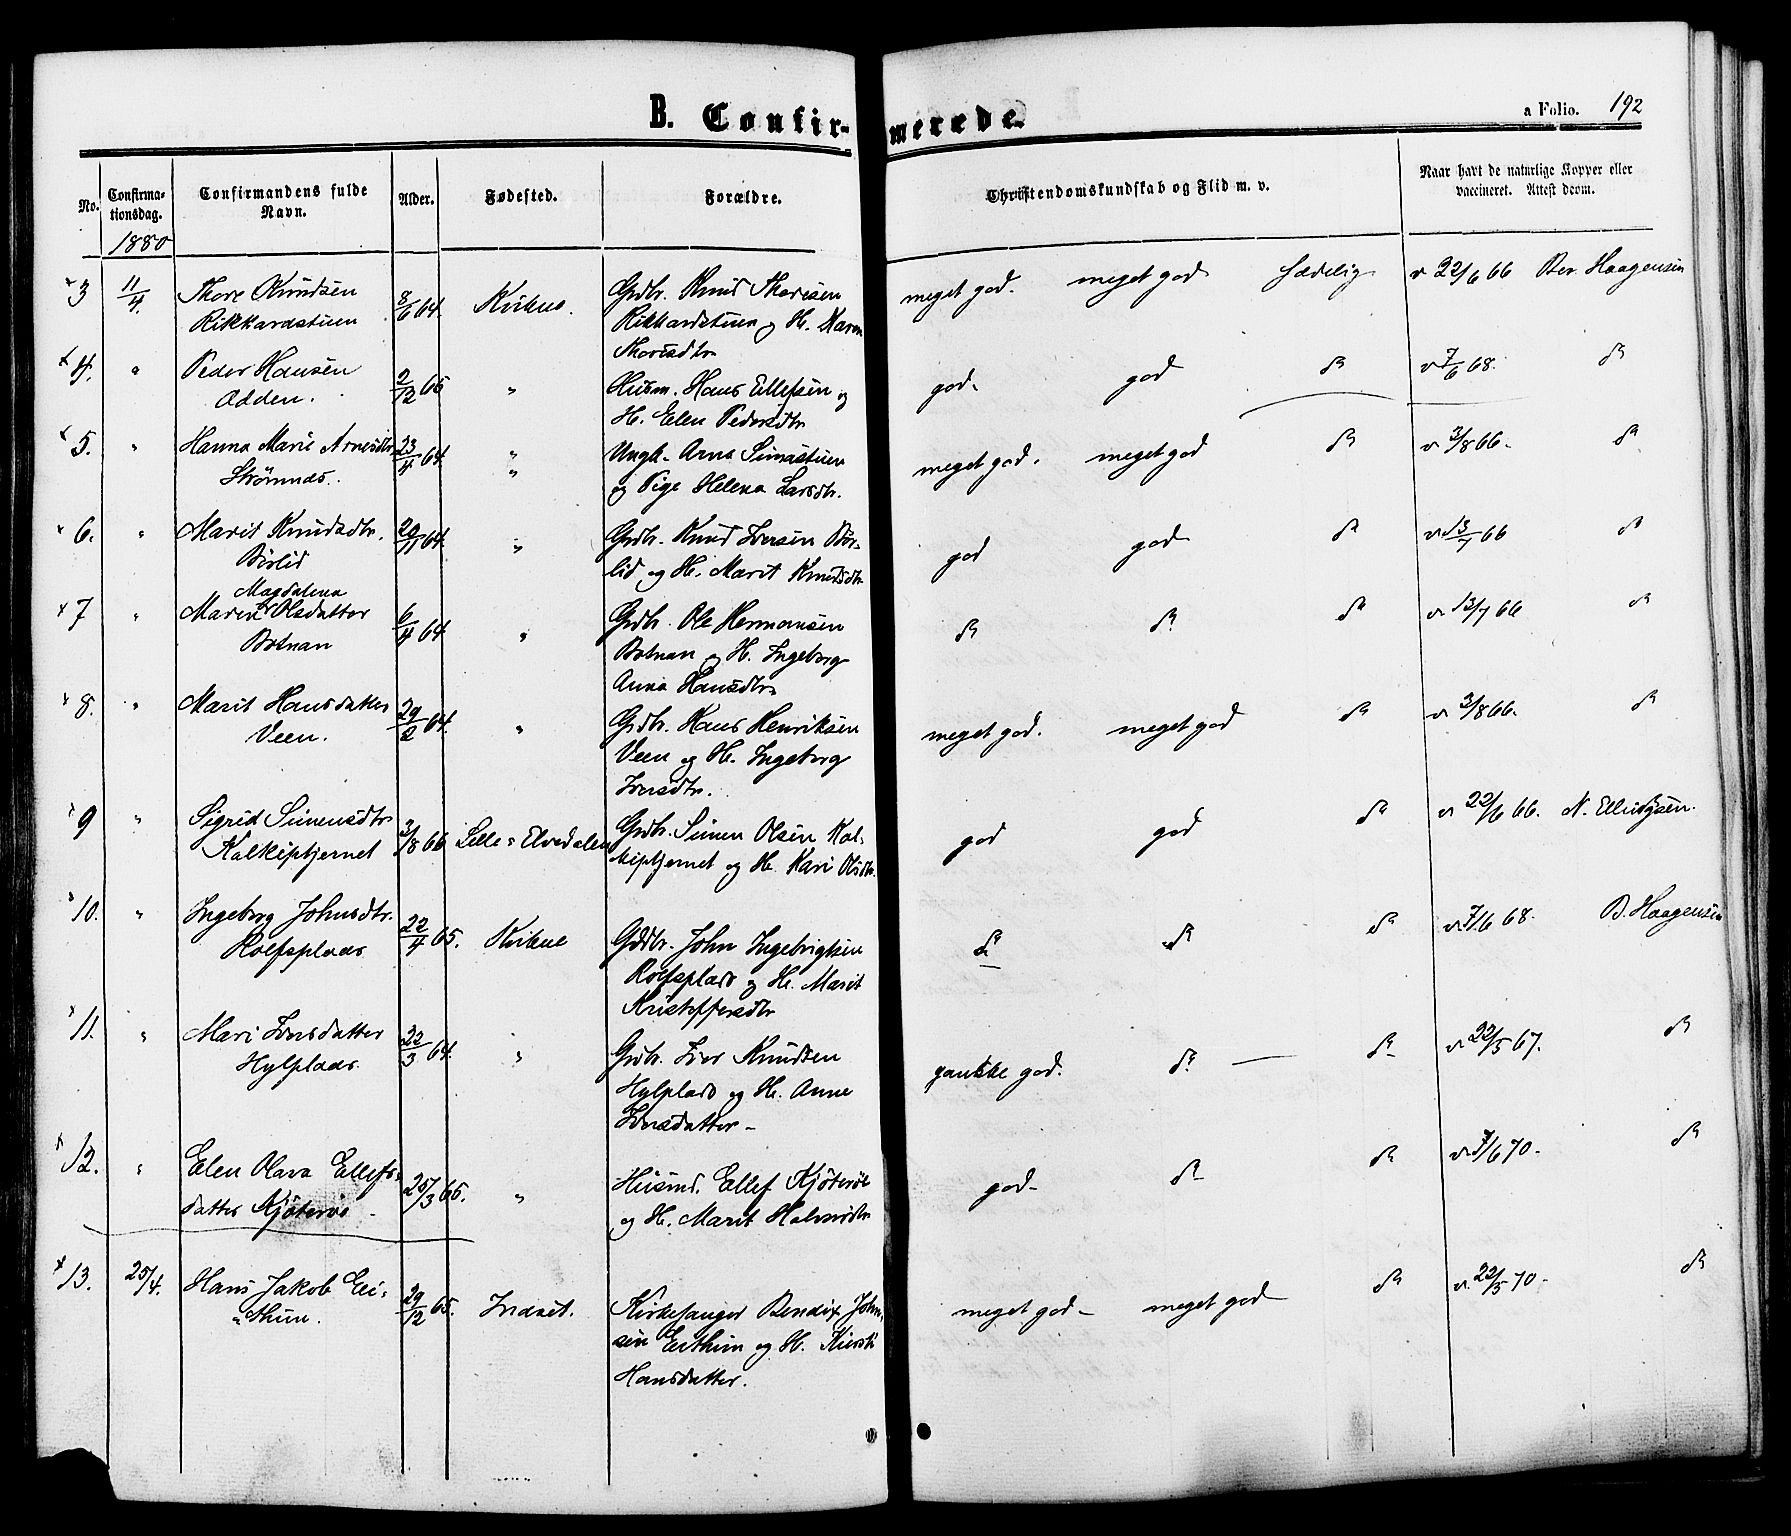 B. Confir-merede.
a Folio. 192
No.
Confirma-
tionsdag.
Confirmandens fulde
Navn.
Alder.
Fødested.
Forældre.
Christendomskundskab og Flid m. v.
Naar havt de naturlige Kopper eller
vaccineret. Attest derom.
1880
3 11/4. Thore Knudsen 8/6 64. Kvikne. Grdbr. Knud Thoresen meget god. meget god Sædelig v 22/6 66 Ber. Haagensen
Rikkardstuen Rikkardstuen og H. Karen
Thoresdtr
4. " Peder Hansen 2/12 65 " Husm. Hans Ellefsen og god. god do v 7/6 68. do
Odden. H. Elen Pedersdtr
5. " Hanna Marie Arnesdtr 23/4 64 " Ungk. Arne Simastuen meget god. meget god do v 3/8 66. do
Strømnes. " og Pige Helena Larsdtr.
6. " Marit Knudsdtr. 20/11 64. " Grdbr. Knud Iversen Bør- god god do v 13/7 66 do
Børlid lid og H. Marit Knudsdtr
Magdalena
7 " Maren Olsdatter 6/4 64 " Grdbr. Ole Hermansen do do do v 13/7 66 do
Botnan Botnan og H. Ingeborg
Anna Hansdtr
8. " Marit Hansdatter 29/2 64. " Grdbr. Hans Henriksen meget god. meget god do v 3/8 66. do
Veen. Veen og H. Ingeborg
Iversdtr.
9 " Sigrid Simensdtr 3/8 66 Lille-Elvedalen Grdbr. Simen Olsen Kal- god god do v 22/6 66. N. Ellingsen.
Kalkiptjernet kiptjernet og H. Kari Olsdtr.
10. " Ingeborg Johnsdtr. 22/4 65. Kvikne Grdbr. John Ingebrigtsen do do do v 7/6 68. B. Haagensen
Rolfsplads Rolfsplads og H. Marit
Kristoffersdtr
11. " Mari Iversdatter 22/3 64. " Grdbr. Iver Knudsen ganske god. do do v 22/5 67. do
Hylplads. Hylplads og H. Anne
Iversdatter
12. " Elen Olava Ellefs- 25/3 65. " Husmd. Ellef Kjøterøe god do do v 7/6 70. do
datter Kjøterøe og H. Marit Halvorsdtr
13. 25/4. Hans Jakob Ei- 29/12 65. Indset. Kirkesanger Bendix John- meget god meget god do v 22/5 70. do
thun. sen Eithun og H. Kirsti
Hansdatter.